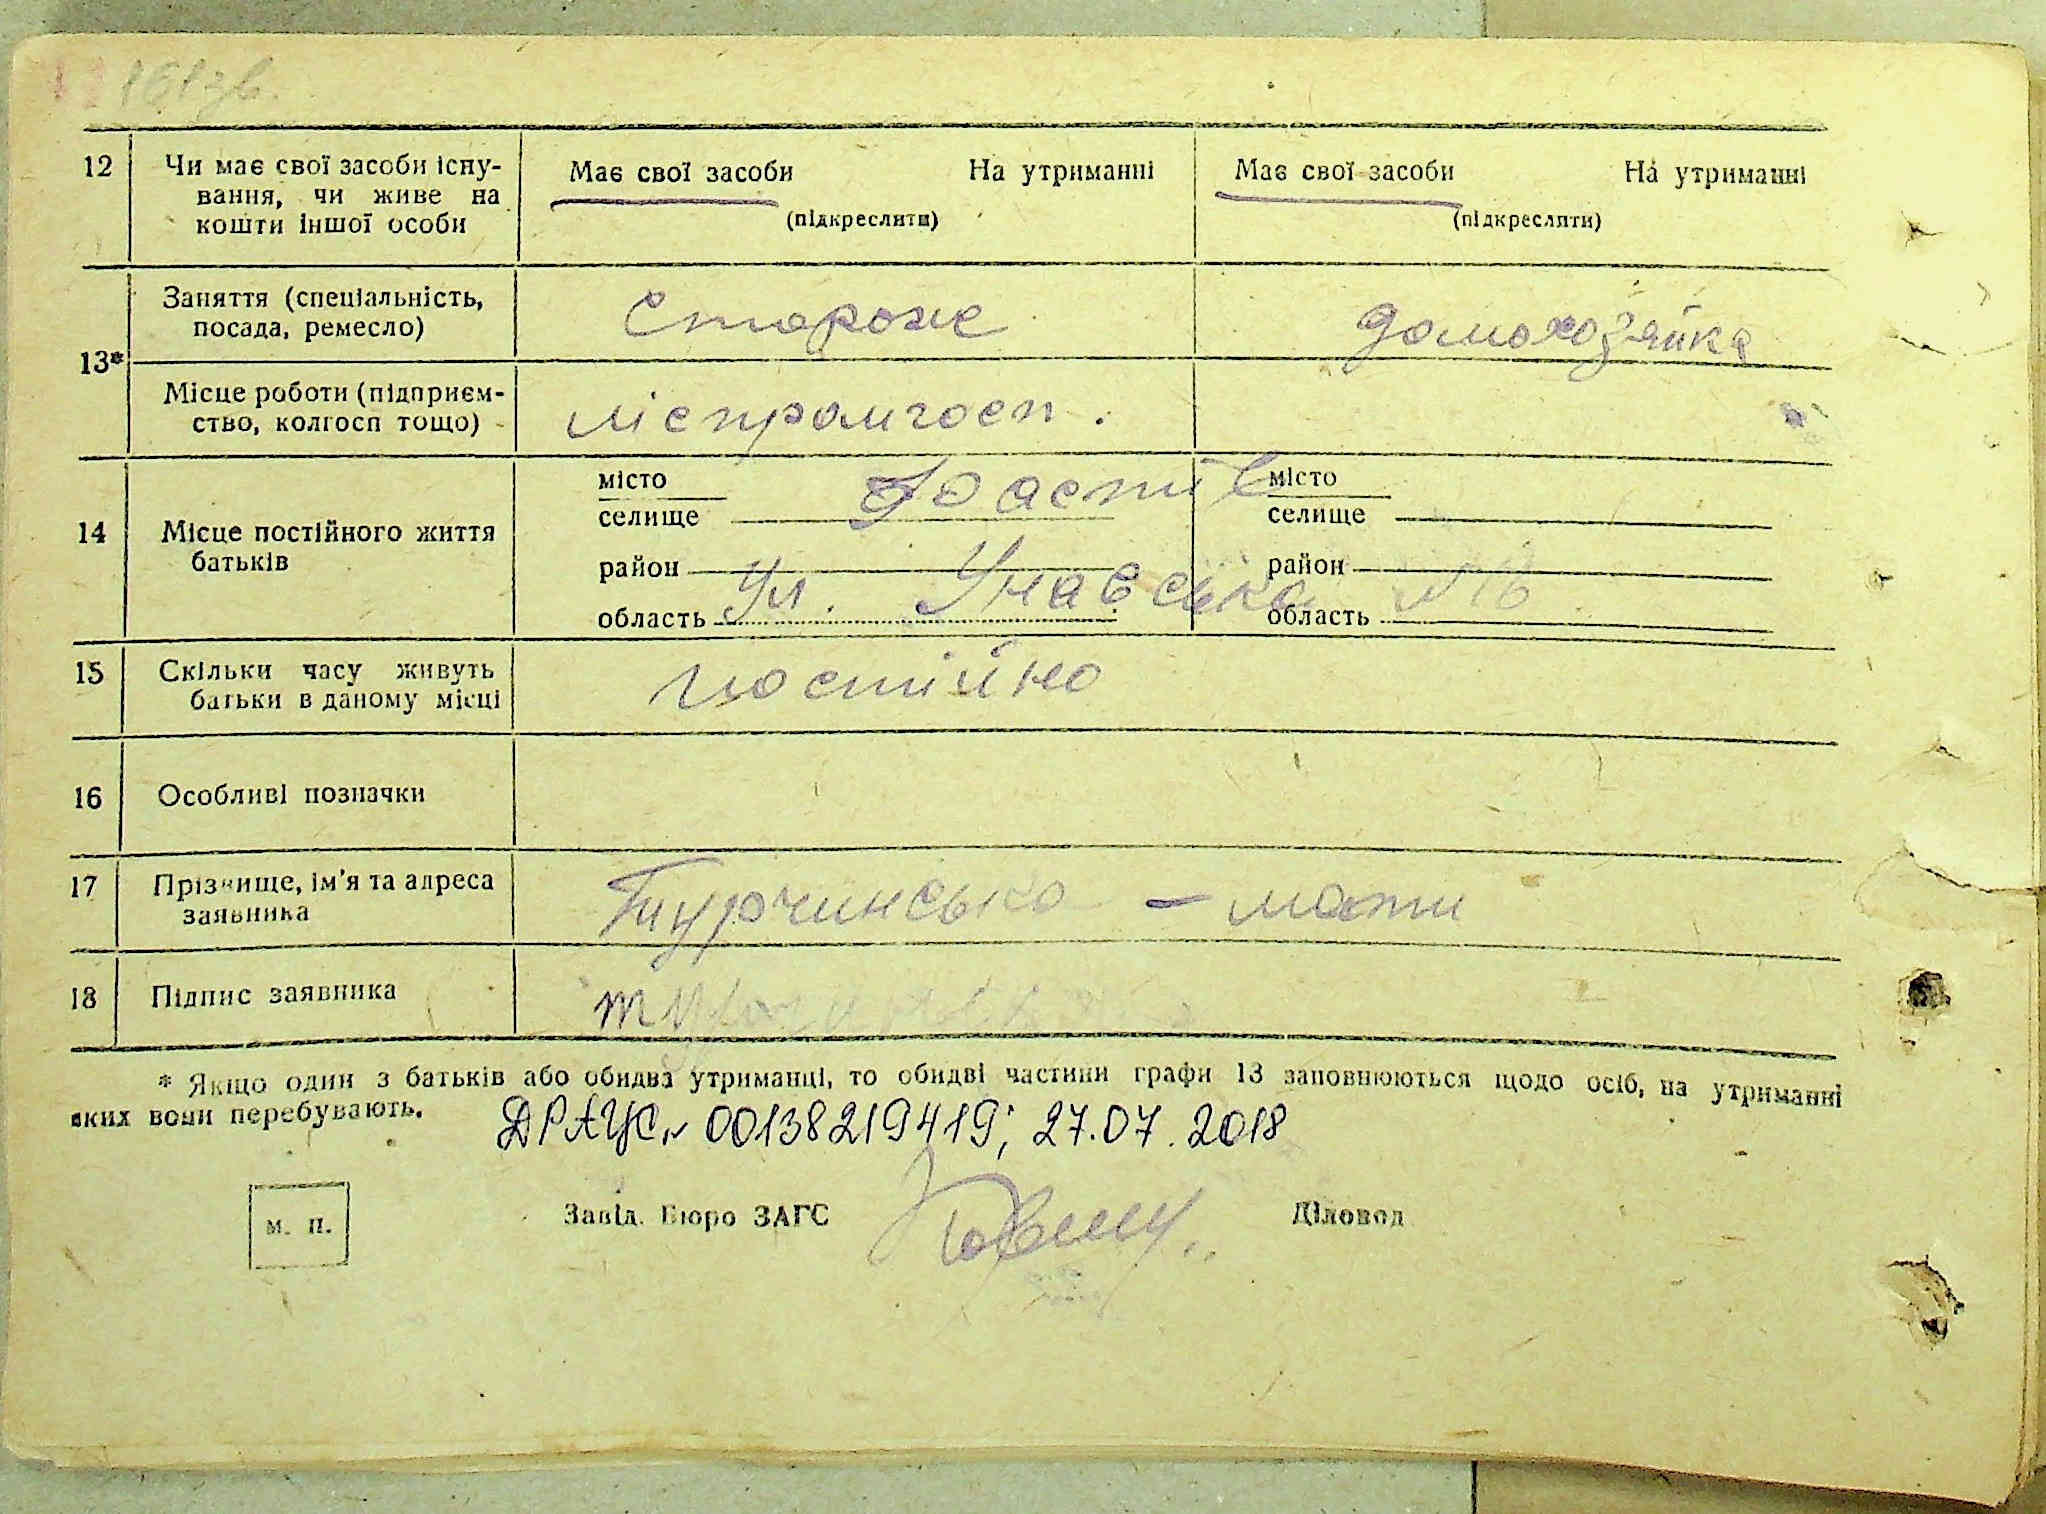 161 зв.
12 Чи має свої засоби існу-
вання, чи живе на
кошти іншої особи
Має свої засоби На утриманні
(підкреслити)
Має свої засоби На утриманні
(підкреслити)
13*
Заняття (спеціальність,
посада, ремесло)
Сторож
домохозяйка
Місце роботи (підприєм-
ство, колгосп тощо)
ліспромгосп.
14 Місце постійного життя
батьків
місто
селище
Фастів
район
область
ул. Унавська №18
місто
селище
район
область
15 Скільки часу живуть
батьки в даному місці
постійно
16 Особливі позначки
17 Прізвище, ім'я та адреса
заявника
Турчинська - мати
18 Підпис заявника
* Якщо один з батьків або обидва утриманці, то обидві частини графи 13 заповнюються щодо осіб, на утриманні
яких вони перебувають.
ДРАЦС, 00138219419; 27.07.2018
м. п.
Завід. Бюро ЗАГС
Діловод